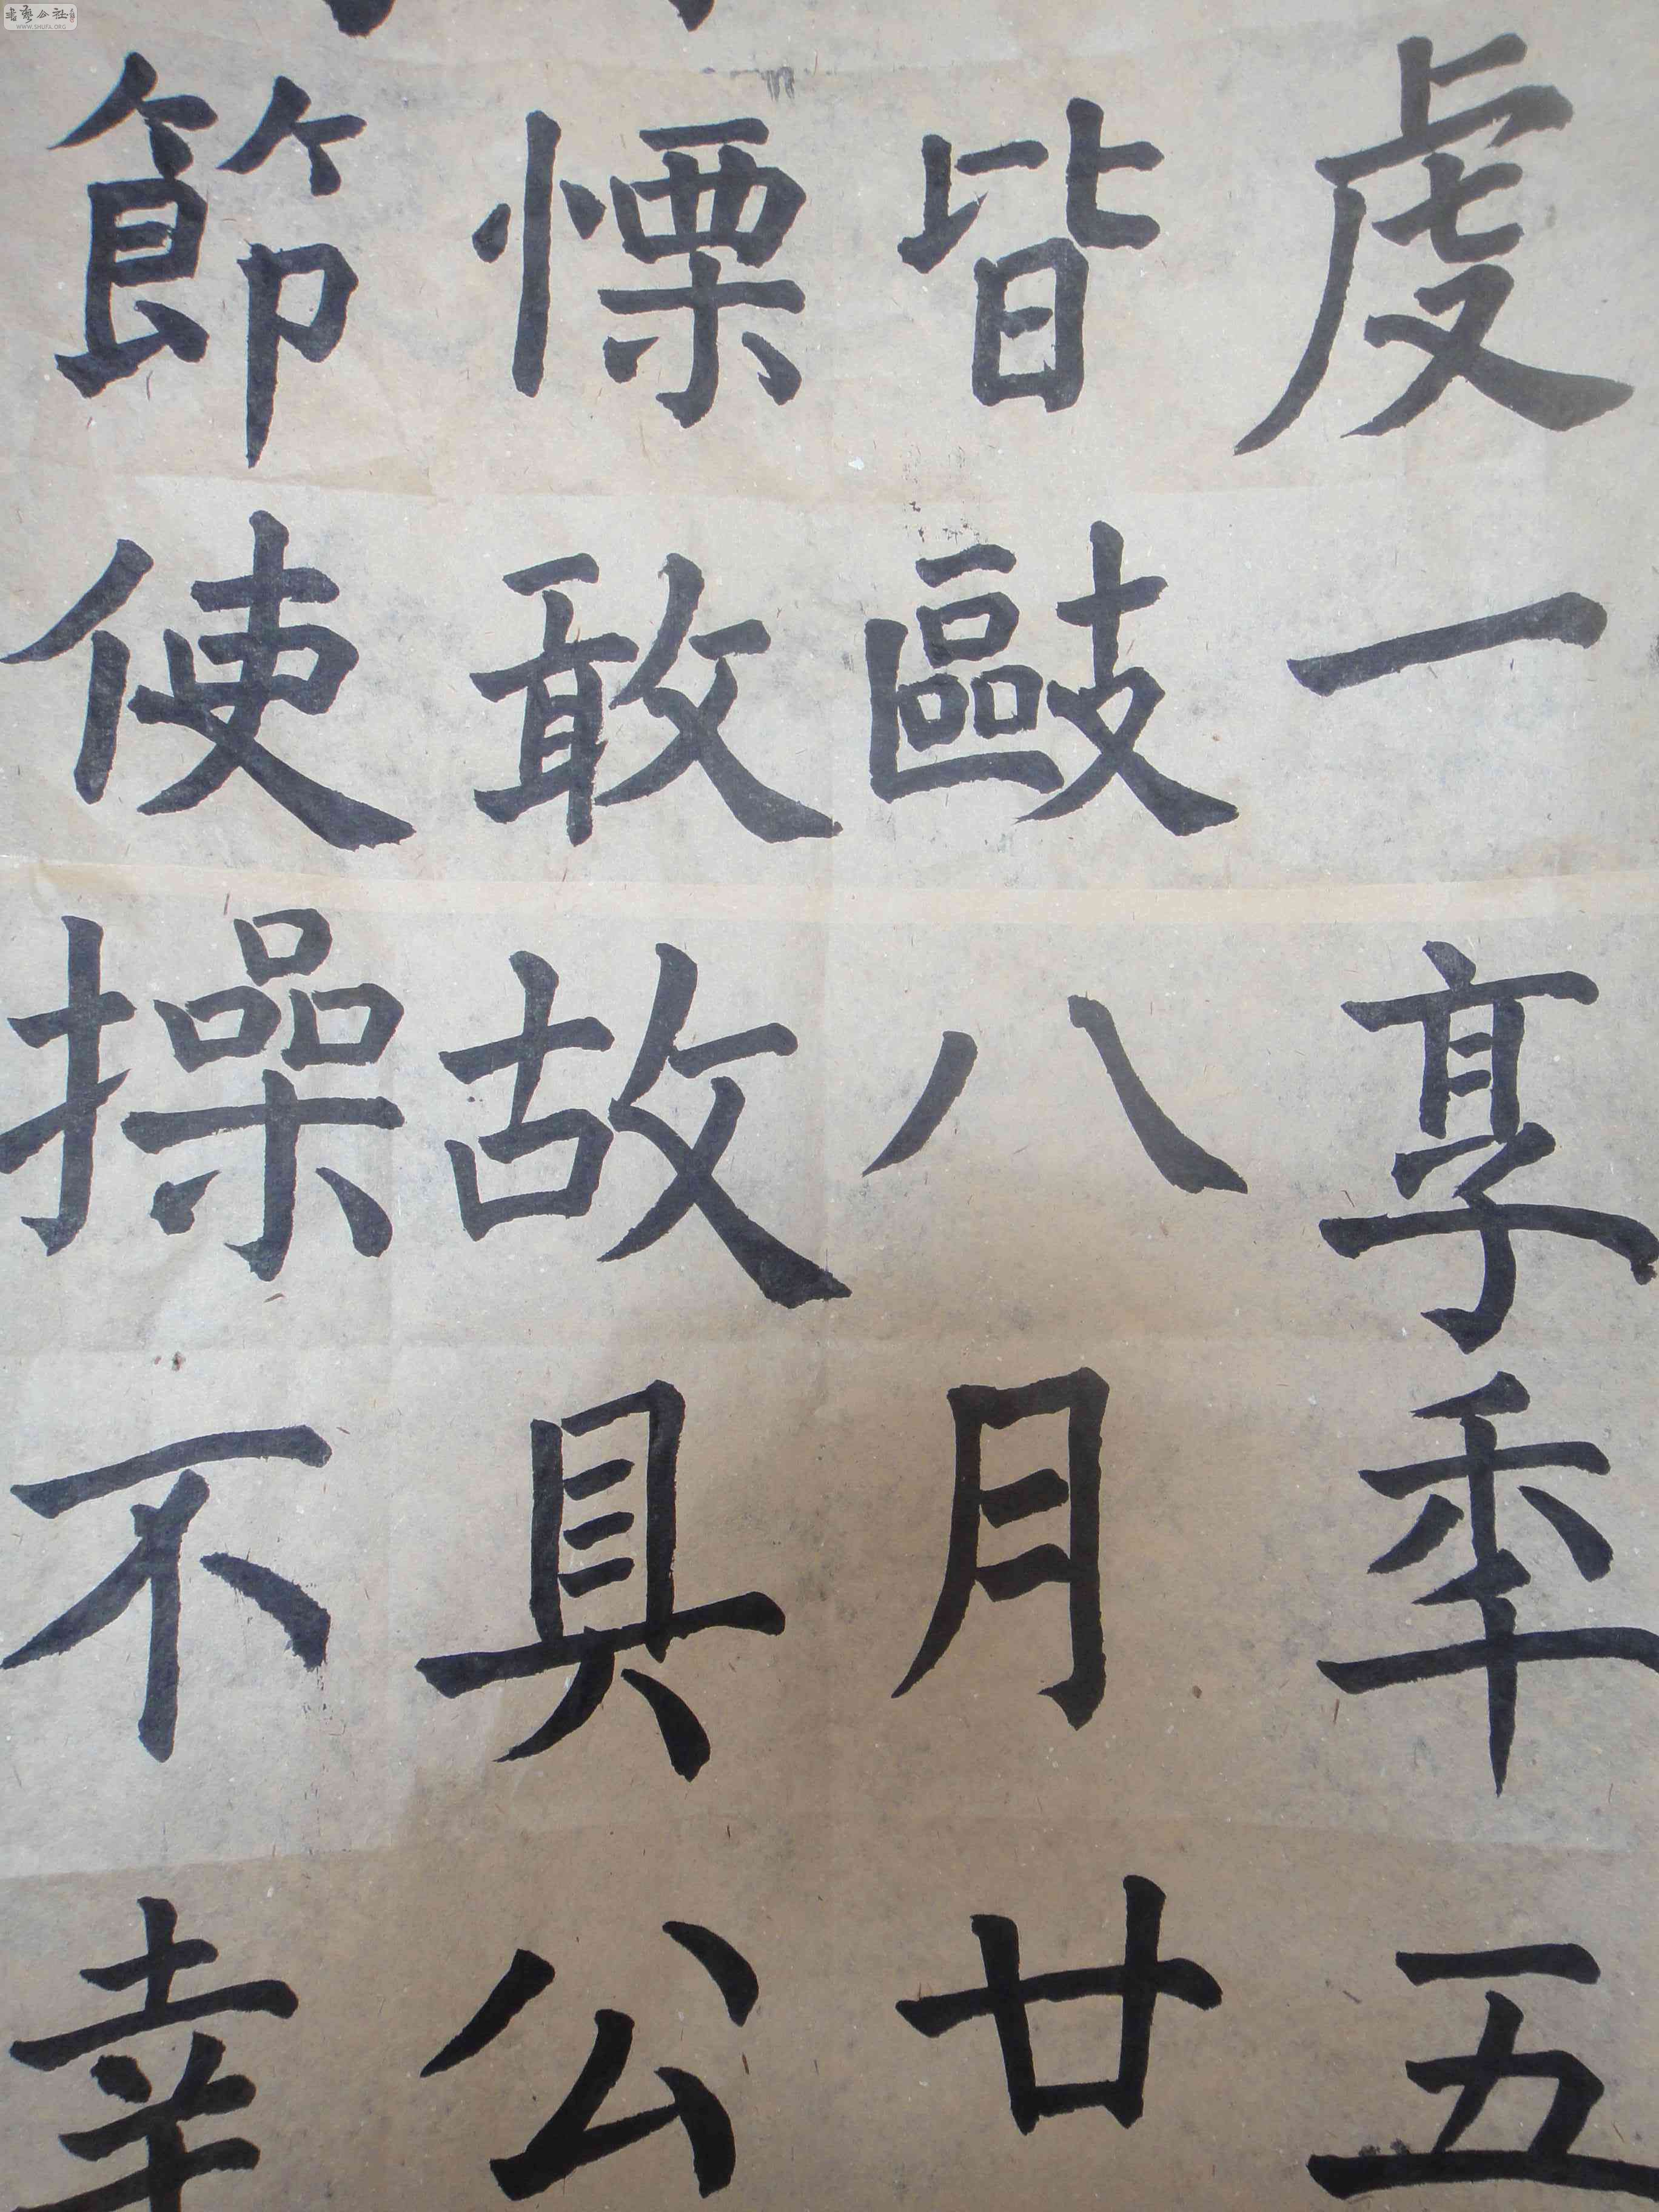 虔一享秊五
皆敺八月廿
慄敢故具公
節使操不幸
書藝公社
WWW.SHUFA.ORG